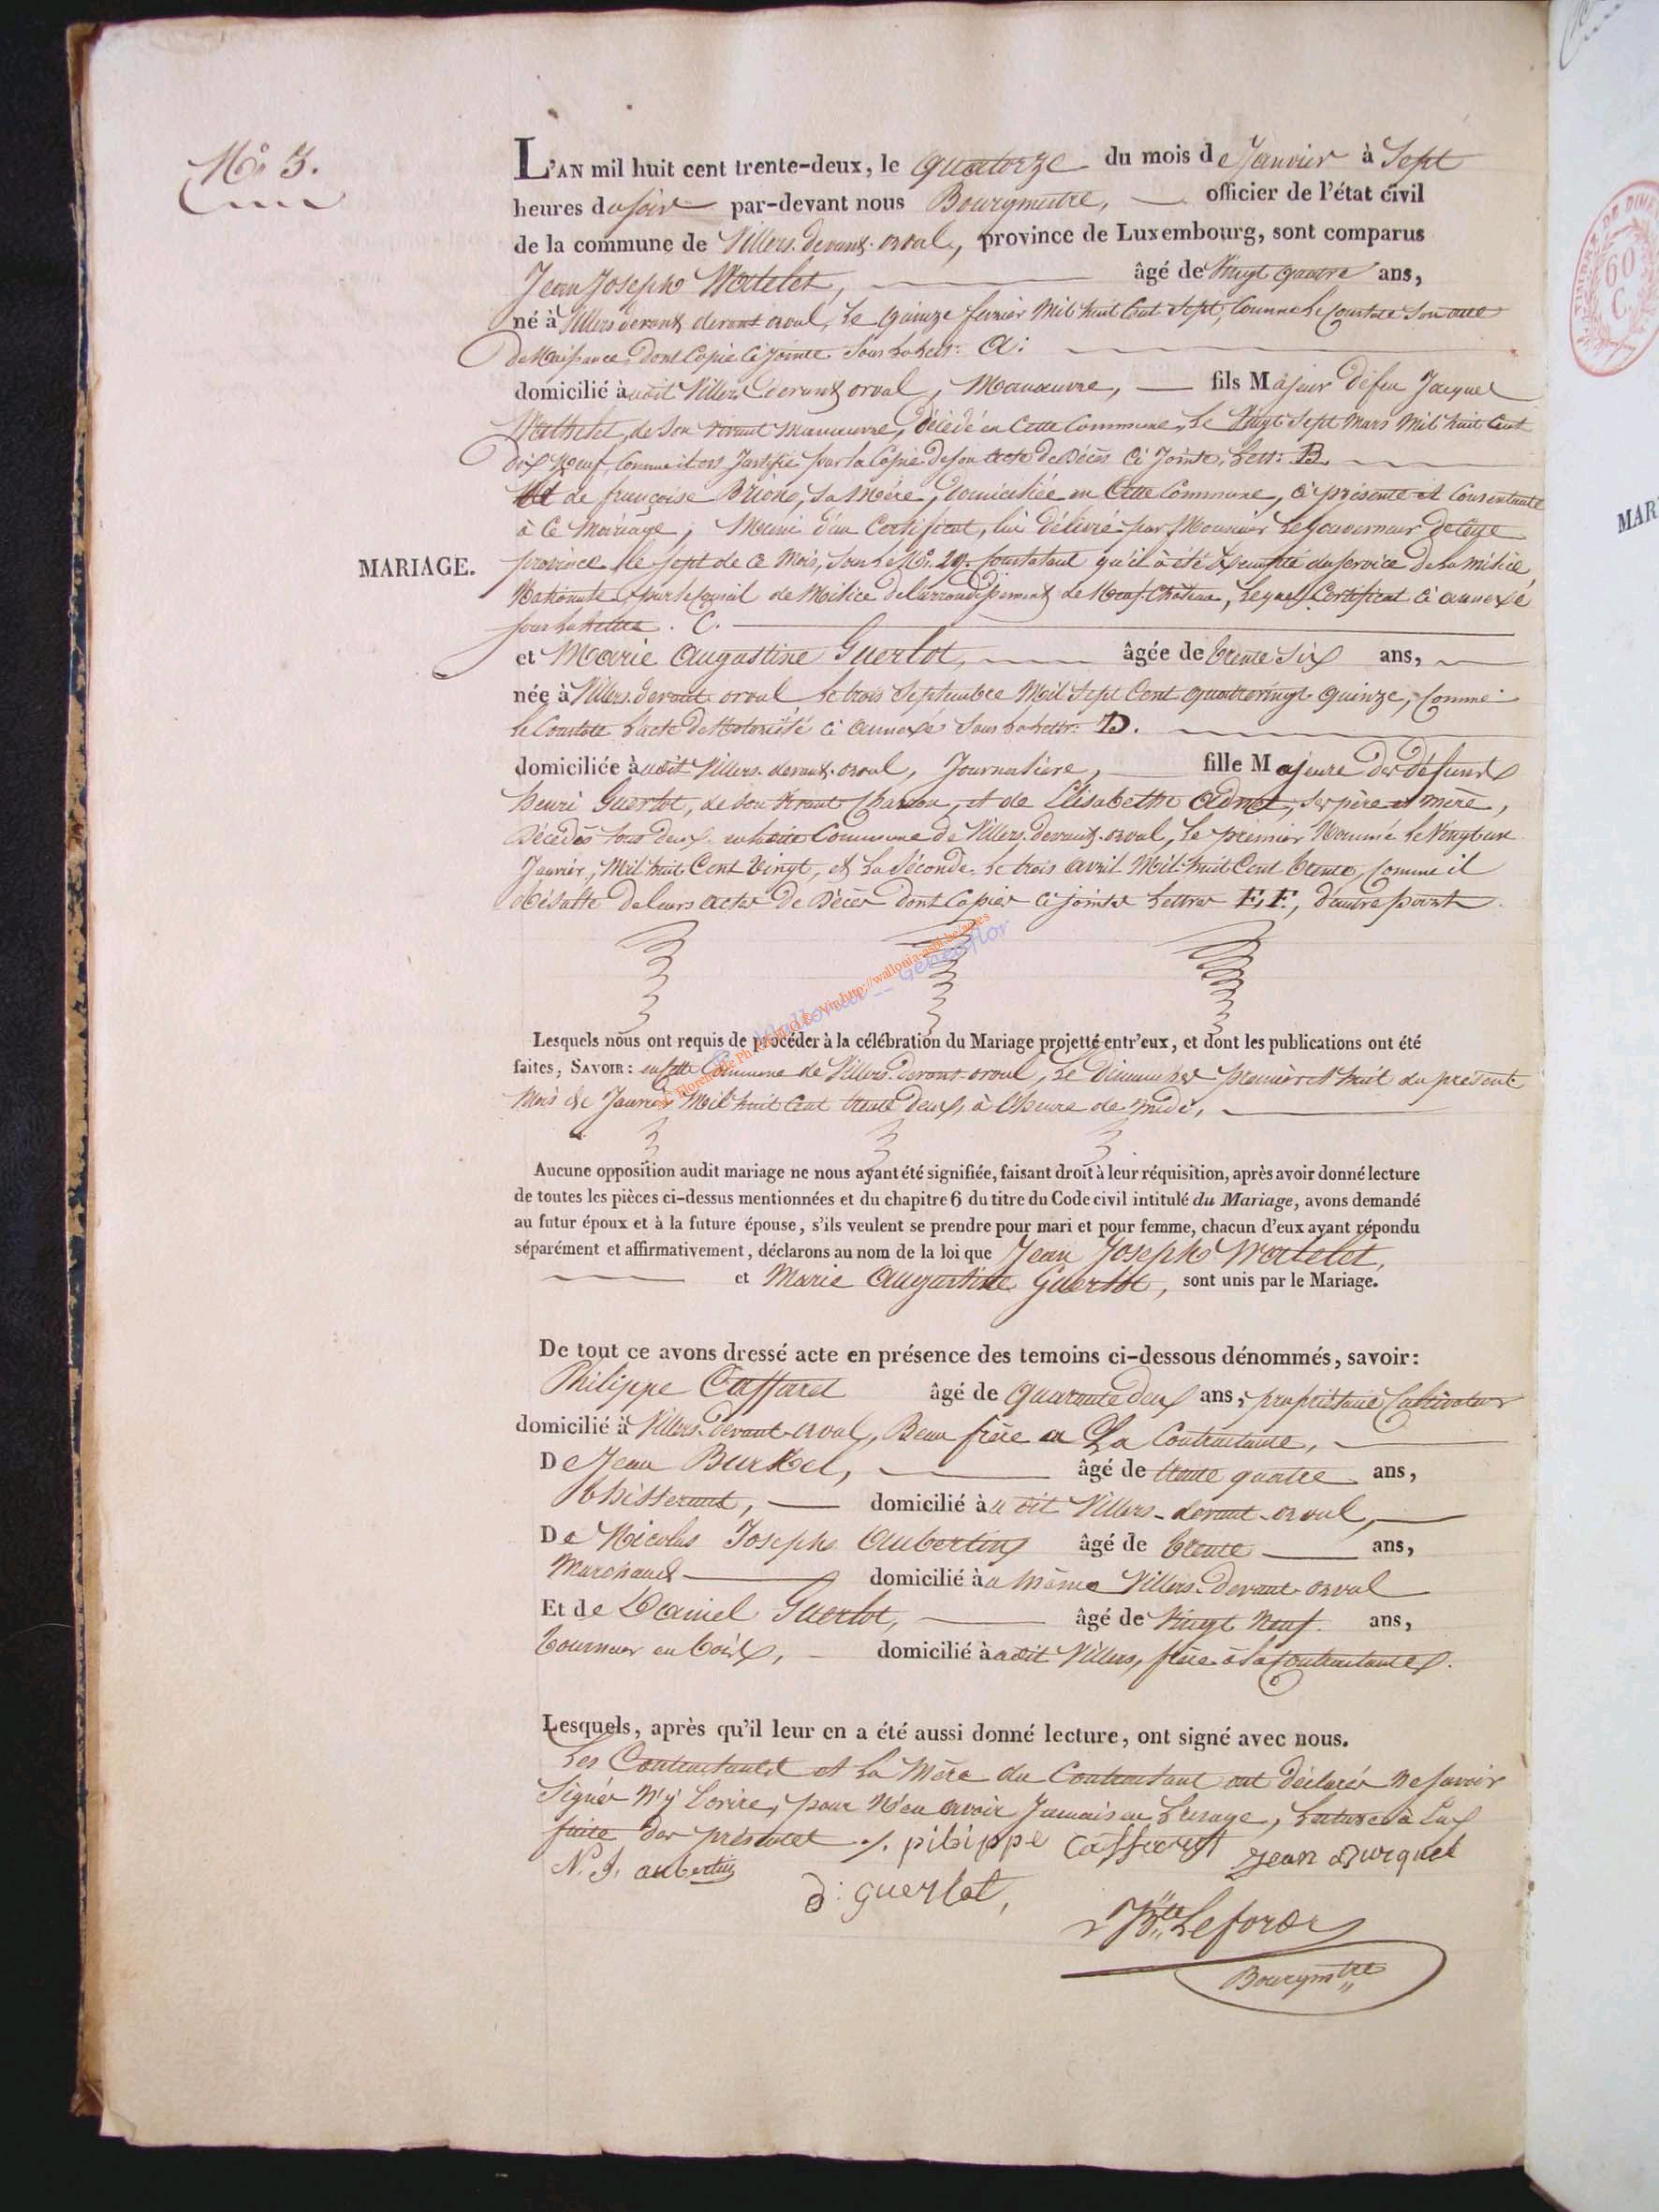 N.º 3.
MARIAGE.
L'AN mil huit cent trente-deux, le quatorze du mois de Janvier à Sept
heures du soir par-devant nous Bourgmestre, officier de l'état civil
de la commune de Villers-devant-orval, province de Luxembourg, sont comparus
Jean Joseph Watelet, âgé de Vingt quatre ans,
né à Villers devant devant orval, le quinze fevrier Mil huit Cent Sept, Comme le Constate Son acte
de Naissance, dont Copie Ci Jointe Sous la lett: A:
domicilié audit Villers devant orval, Manœuvre, fils Majeur de feu Jacques
Wathelet, de Son vivant manœuvre, décédé en Cette Commune, le Vingt Sept Mars Mil huit Cent
dix Neuf, Comme il est Justifié par la Copie de son acte de Décès Ci Jointe, Lett: B.
Et de françoise Brione, Sa Mère, domiciliée en Cette Commune, Ci présente et Consentante
à Ce Mariage; Muni d'un Certificat, lui délivré par Monsieur le Gouverneur de Cette
province le sept de Ce Mois, Sous le N.º 29. Constatant qu'il à été Exempté du service de la milice
Nationale par le Conseil de Milice de l'arrondissement de Neuf-Château, Lequel Certificat Ci annexé
sous la lettre. C.
et Marie Augustine Guerlot, âgée de trente Six ans,
née à Villers devant orval, le trois Septembre Mil Sept Cent quatrevingt quinze, Comme
le Constate l'acte de Notoriété Ci annexé Sous la lettr: D.
domiciliée audit Villers-devant-orval, Journalière, fille Majeure des défunts
henri Guerlot, de son vivant Charon, et de Elisabethe Adnet, Ses père et mère,
Décédés tous deux en Commune de Villers-devant-orval, le premier Nommé le Vingt un
Janvier, Mil huit Cent Vingt, et la Séconde le trois avril Mil huit Cent trente, Comme il
Résulte de leurs actes de Décès dont Copies Ci jointes Lettres E, F., d'autre part
Lesquels nous ont requis de procéder à la célébration du Mariage projetté entr'eux, et dont les publications ont été
faites, SAVOIR: en Cette Commune de Villers-devant-orval, le Dimanches premier et huit du présent
Mois de Janvier Mil huit Cent trente deux, à l'heure de midi,
Aucune opposition audit mariage ne nous ayant été signifiée, faisant droit à leur réquisition, après avoir donné lecture
de toutes les pièces ci-dessus mentionnées et du chapitre 6 du titre du Code civil intitulé du Mariage, avons demandé
au futur époux et à la future épouse, s'ils veulent se prendre pour mari et pour femme, chacun d'eux ayant répondu
séparément et affirmativement, déclarons au nom de la loi que Jean Joseph Watelet,
et Marie Augustine Guerlot, sont unis par le Mariage.
De tout ce avons dressé acte en présence des temoins ci-dessous dénommés, savoir:
Philippe Caffard âgé de quarante deux ans, propriétaire Cultivateur
domicilié à Villers-devant-orval, Beau frère a La Contractante,
De Jean Burkel, âgé de trente quatre ans,
domicilié audit Villers-devant-orval,
De Nicolas Joseph Aubertin âgé de trente ans,
Marchand domicilié au même Villers-devant-orval
Et de Daniel Guerlot, âgé de Vingt Neuf ans,
tourneur en bois, domicilié audit Villers, frère à la Contractante.
Lesquels, après qu'il leur en a été aussi donné lecture, ont signé avec nous.
Les Contractants et la Mère du Contractant ont déclarés ne Savoir
Signer N'y Ecrire, pour N'en avoir Jamais eu L'usage, Lecture à Eux
faite des présentes ./. pilippe Caffard Jean Burquel
N. J. aubertin
D: Guerlot,
Lefor
Bourgm.tre
TIMBRE DE DIME
60
C.
MAR